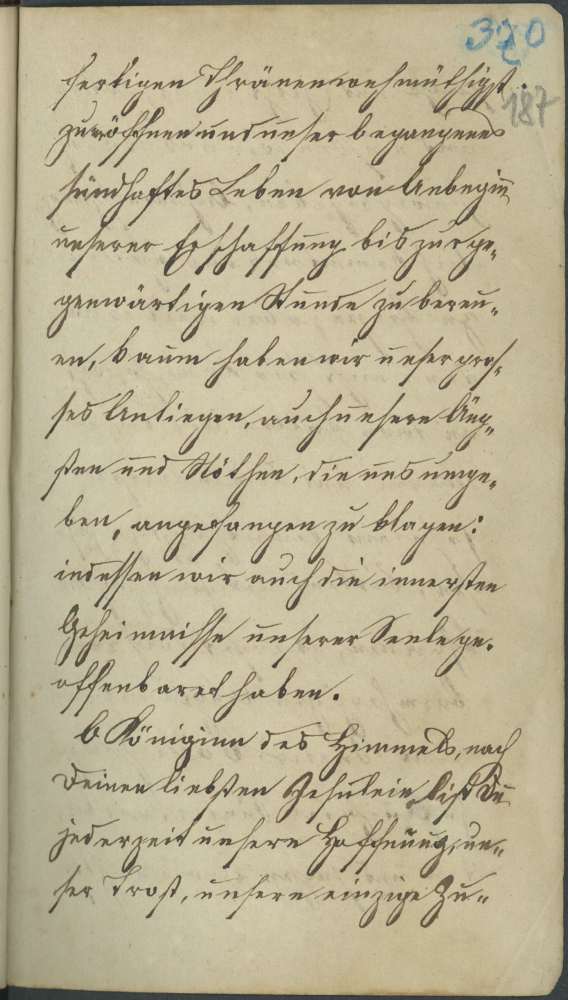 320
187
fertigen Thränen wehmüthigst
zu eröffnen und unser begangenes
sündhaftes Leben von Anbeginn
unserer Erschaffung bis zur ge„
genwärtigen Stunde zu bereu„
en, kaum haben wir unser gros„
ses Anliegen, auch unsere Äng„
sten und Nöthen, die uns umge„
ben, angefangen zu klagen:
indessen wir auch die innersten
Geheimnisse unserer Seele ge„
offenbaret haben.
O Königinn des Himmels, nach
Deinen liebsten Jesulein bist Du
jederzeit unsere Hoffnung, un„
ser Trost, unsere einzige Zu„